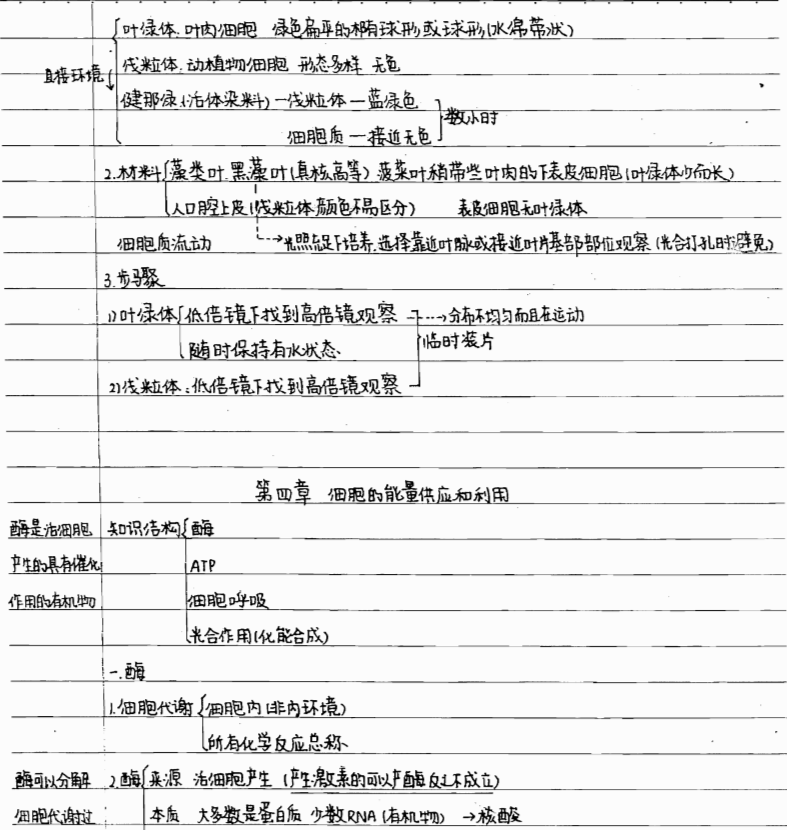 叶绿体.叶肉细胞 绿色扁平的椭球形或球形(水绵带状)
直接环境 线粒体.动植物细胞 形态多样 无色
健那绿(活体染料)—线粒体—蓝绿色
数小时
细胞质—接近无色
2.材料 藻类叶.黑藻叶(真核高等) 菠菜叶稍带些叶肉的下表皮细胞(叶绿体少而大)
人口腔上皮(线粒体颜色不易区分) 表皮细胞无叶绿体
细胞质流动 光照充足下培养.选择靠近叶脉或接近叶片基部部位观察(光合打孔时避免)
3.步骤
1)叶绿体 低倍镜下找到高倍镜观察 → 分布不均匀而且在运动
随时保持有水状态. 临时装片
2)线粒体:低倍镜下找到高倍镜观察
第四章 细胞的能量供应和利用
酶是活细胞 知识结构 酶
产生的具有催化 ATP
作用的有机物 细胞呼吸
光合作用(化能合成)
一.酶
1.细胞代谢 细胞内(非内环境)
所有化学反应总称.
酶可以分解 2.酶 来源 活细胞产生(产生激素的可以产酶反过不成立)
细胞代谢过 本质 大多数是蛋白质 少数RNA(有机物) →核酸